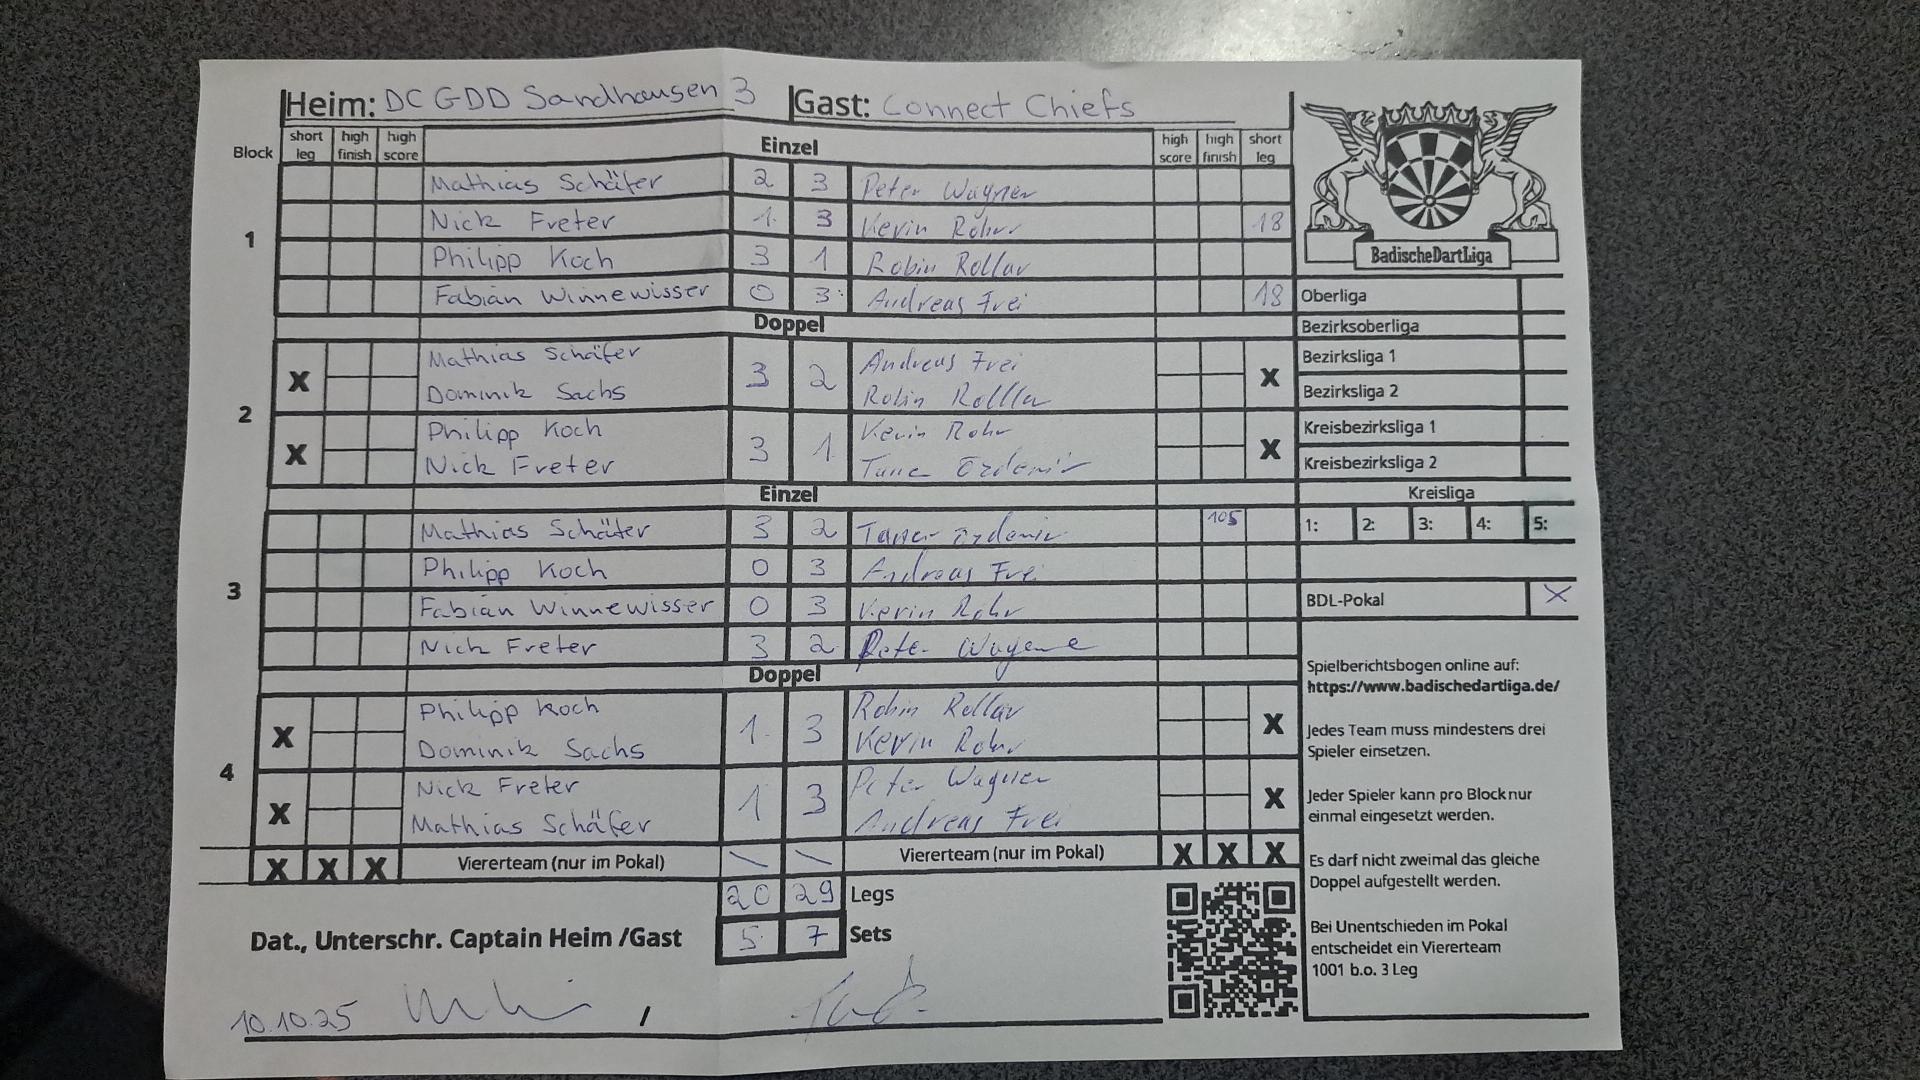 Heim: DC GDD Sandhausen 3 Gast: Connect Chiefs
Block short leg high finish high score Einzel high score high finish short leg
1
Mathias Schäfer 2 3 Peter Wagner
Nick Freter 1 3 Kevin Rohr 18
Philipp Koch 3 1 Robin Rollar
Fabian Winnewisser 0 3 Andreas Frei 18
Doppel
2
X Mathias Schäfer 3 2 Andreas Frei X
Dominik Sachs Robin
X Philipp Koch 3 1 Kevin Rohr X
Nick Freter
Einzel
3
Mathias Schäfer 3 2 105
Philipp Koch 0 3 Andreas Frei
Fabian Winnewisser 0 3 Kevin Rohr
Nick Freter 3 2 Peter
Doppel
4
X Philipp Koch 1 3 Robin Rollar X
Dominik Sachs Kevin Rohr
X Nick Freter 1 3 Peter Wagner X
Mathias Schäfer Andreas Frei
X X X Viererteam (nur im Pokal) \ \ Viererteam (nur im Pokal) X X X
20 29 Legs
Dat., Unterschr. Captain Heim /Gast 5 7 Sets
10.10.25 /
BadischeDartLiga
Oberliga
Bezirksoberliga
Bezirksliga 1
Bezirksliga 2
Kreisbezirksliga 1
Kreisbezirksliga 2
Kreisliga
1: 2: 3: 4: 5:
BDL-Pokal X
Spielberichtsbogen online auf:
https://www.badischedartliga.de/
Jedes Team muss mindestens drei
Spieler einsetzen.
Jeder Spieler kann pro Block nur
einmal eingesetzt werden.
Es darf nicht zweimal das gleiche
Doppel aufgestellt werden.
Bei Unentschieden im Pokal
entscheidet ein Viererteam
1001 b.o. 3 Leg